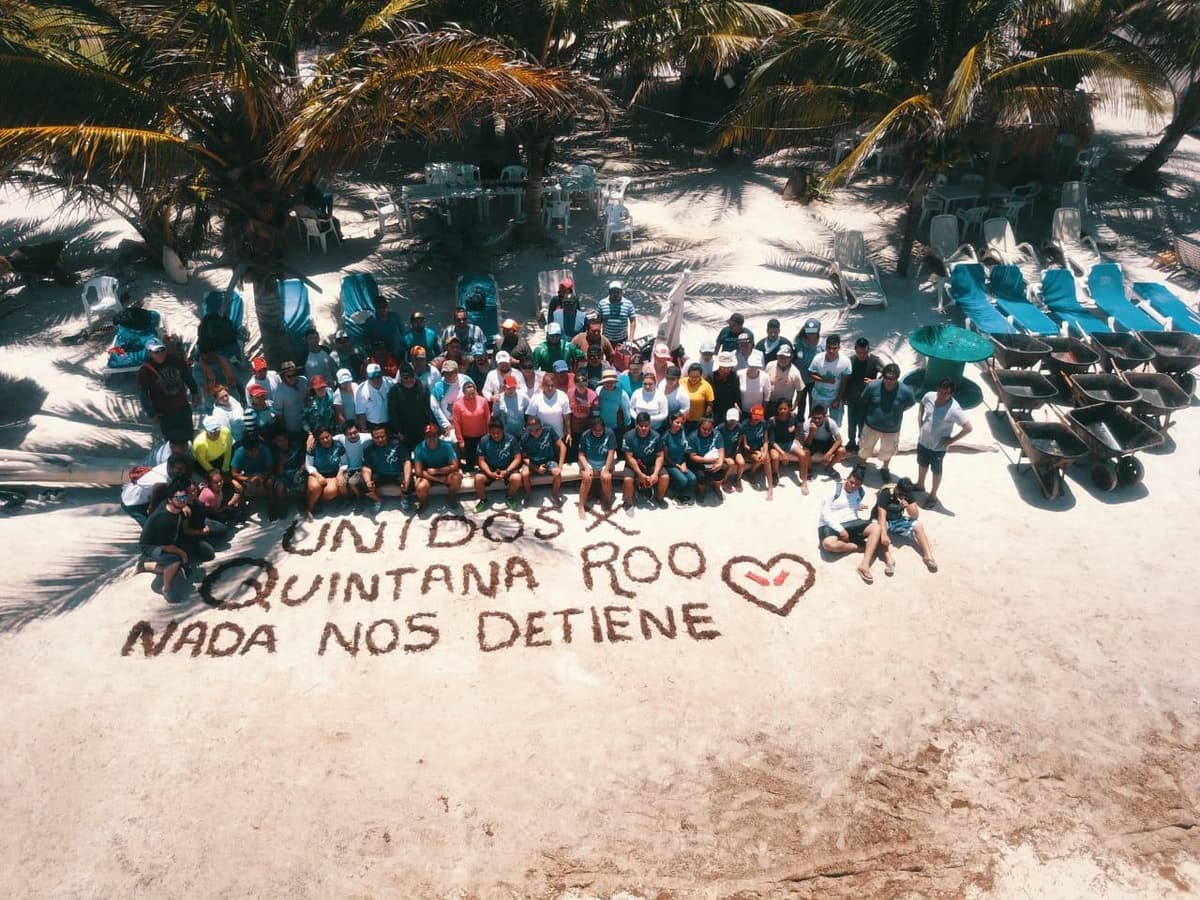 UNIDOS X
QUINTANA ROO
NADA NOS DETIENE